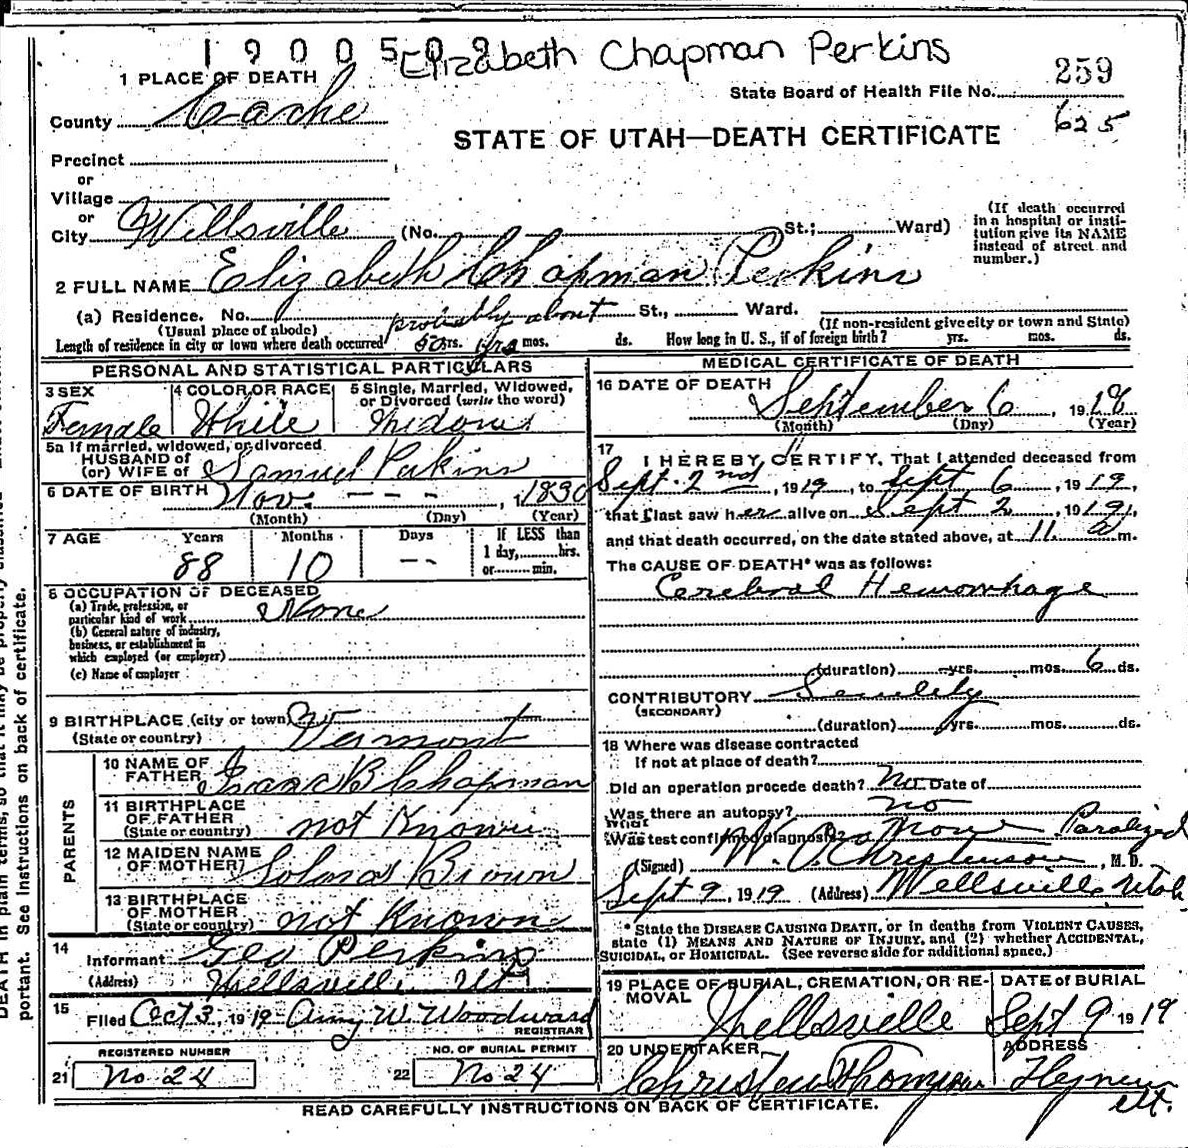 1 9 0 0 5 0 9 Elizabeth Chapman Perkins
1 PLACE OF DEATH
259
State Board of Health File No.
625
County Cache
STATE OF UTAH—DEATH CERTIFICATE
Precinct
or
Village
or
City Wellsville (No. St.; Ward)
(If death occurred in a hospital or institution give its NAME instead of street and number.)
2 FULL NAME Elizabeth Chapman Perkins
(a) Residence. No. St., Ward.
(Usual place of abode) probably about (If non-resident give city or town and State)
Length of residence in city or town where death occurred 50 yrs. yrs mos. ds. How long in U. S., if of foreign birth? yrs. mos. ds.
PERSONAL AND STATISTICAL PARTICULARS
3 SEX Female
4 COLOR OR RACE White
5 Single, Married, Widowed, or Divorced (write the word) Widow
5a If married, widowed, or divorced
HUSBAND of
(or) WIFE of Samuel Perkins
6 DATE OF BIRTH Nov. — — — , 1830
(Month) (Day) (Year)
7 AGE Years Months Days If LESS than
1 day, hrs.
or min.
88 10 --
8 OCCUPATION OF DECEASED
(a) Trade, profession, or
particular kind of work None
(b) General nature of industry,
business, or establishment in
which employed (or employer)
(c) Name of employer
9 BIRTHPLACE (city or town)
(State or country) Vermont
PARENTS
10 NAME OF
FATHER Isaac B Chapman
11 BIRTHPLACE
OF FATHER
(State or country) not Known
12 MAIDEN NAME
OF MOTHER Brown
13 BIRTHPLACE
OF MOTHER
(State or country) not Known
14
Informant Geo Perkins
(Address) Wellsville Ut
15 Filed Oct 3, 1919 Amy W. Woodward
REGISTRAR
REGISTERED NUMBER
21 No 24
NO. OF BURIAL PERMIT
22 No 24
MEDICAL CERTIFICATE OF DEATH
16 DATE OF DEATH
September 6, 1919
(Month) (Day) (Year)
17
I HEREBY CERTIFY, That I attended deceased from
Sept. 2nd, 1919, to Sept 6, 1919,
that I last saw her alive on Sept 2, 1919,
and that death occurred, on the date stated above, at 11 a m.
The CAUSE OF DEATH* was as follows:
Cerebral Hemorrhage
(duration) yrs. mos. 6 ds.
CONTRIBUTORY Senility
(SECONDARY)
(duration) yrs. mos. ds.
18 Where was disease contracted
If not at place of death?
Did an operation procede death? No Date of
Was there an autopsy? no
What
Was test confirmed diagnosis? None Paralized
(Signed) W. O. Christenson, M. D.
Sept 9, 1919 (Address) Wellsville Utah
* State the DISEASE CAUSING DEATH, or in deaths from VIOLENT CAUSES,
state (1) MEANS AND NATURE OF INJURY, and (2) whether ACCIDENTAL,
SUICIDAL, or HOMICIDAL. (See reverse side for additional space.)
19 PLACE OF BURIAL, CREMATION, OR RE-
MOVAL Wellsville
DATE of BURIAL
Sept 9 1919
20 UNDERTAKER
ADDRESS
Ut.
READ CAREFULLY INSTRUCTIONS ON BACK OF CERTIFICATE.
DEATH in plain terms, so that it may be properly classified.
portant. See instructions on back of certificate.